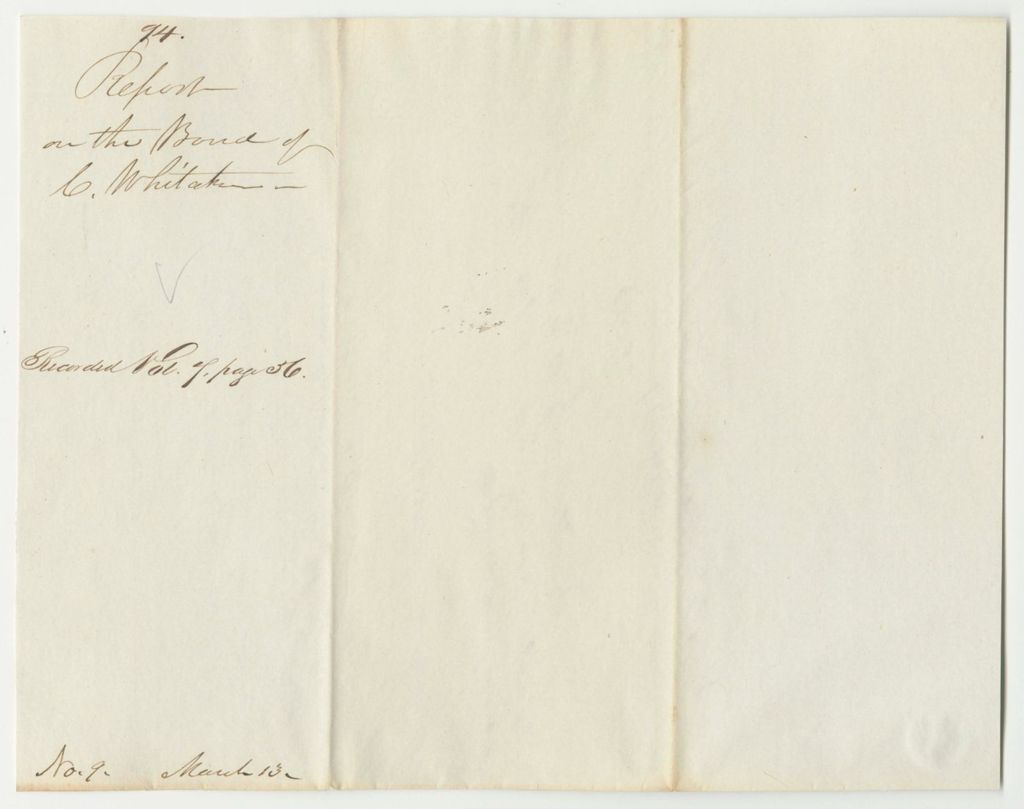 94.
Report
on the Bond of
C. Whitaker
Recorded Vol. 7, page 36.
No. 9. March 13